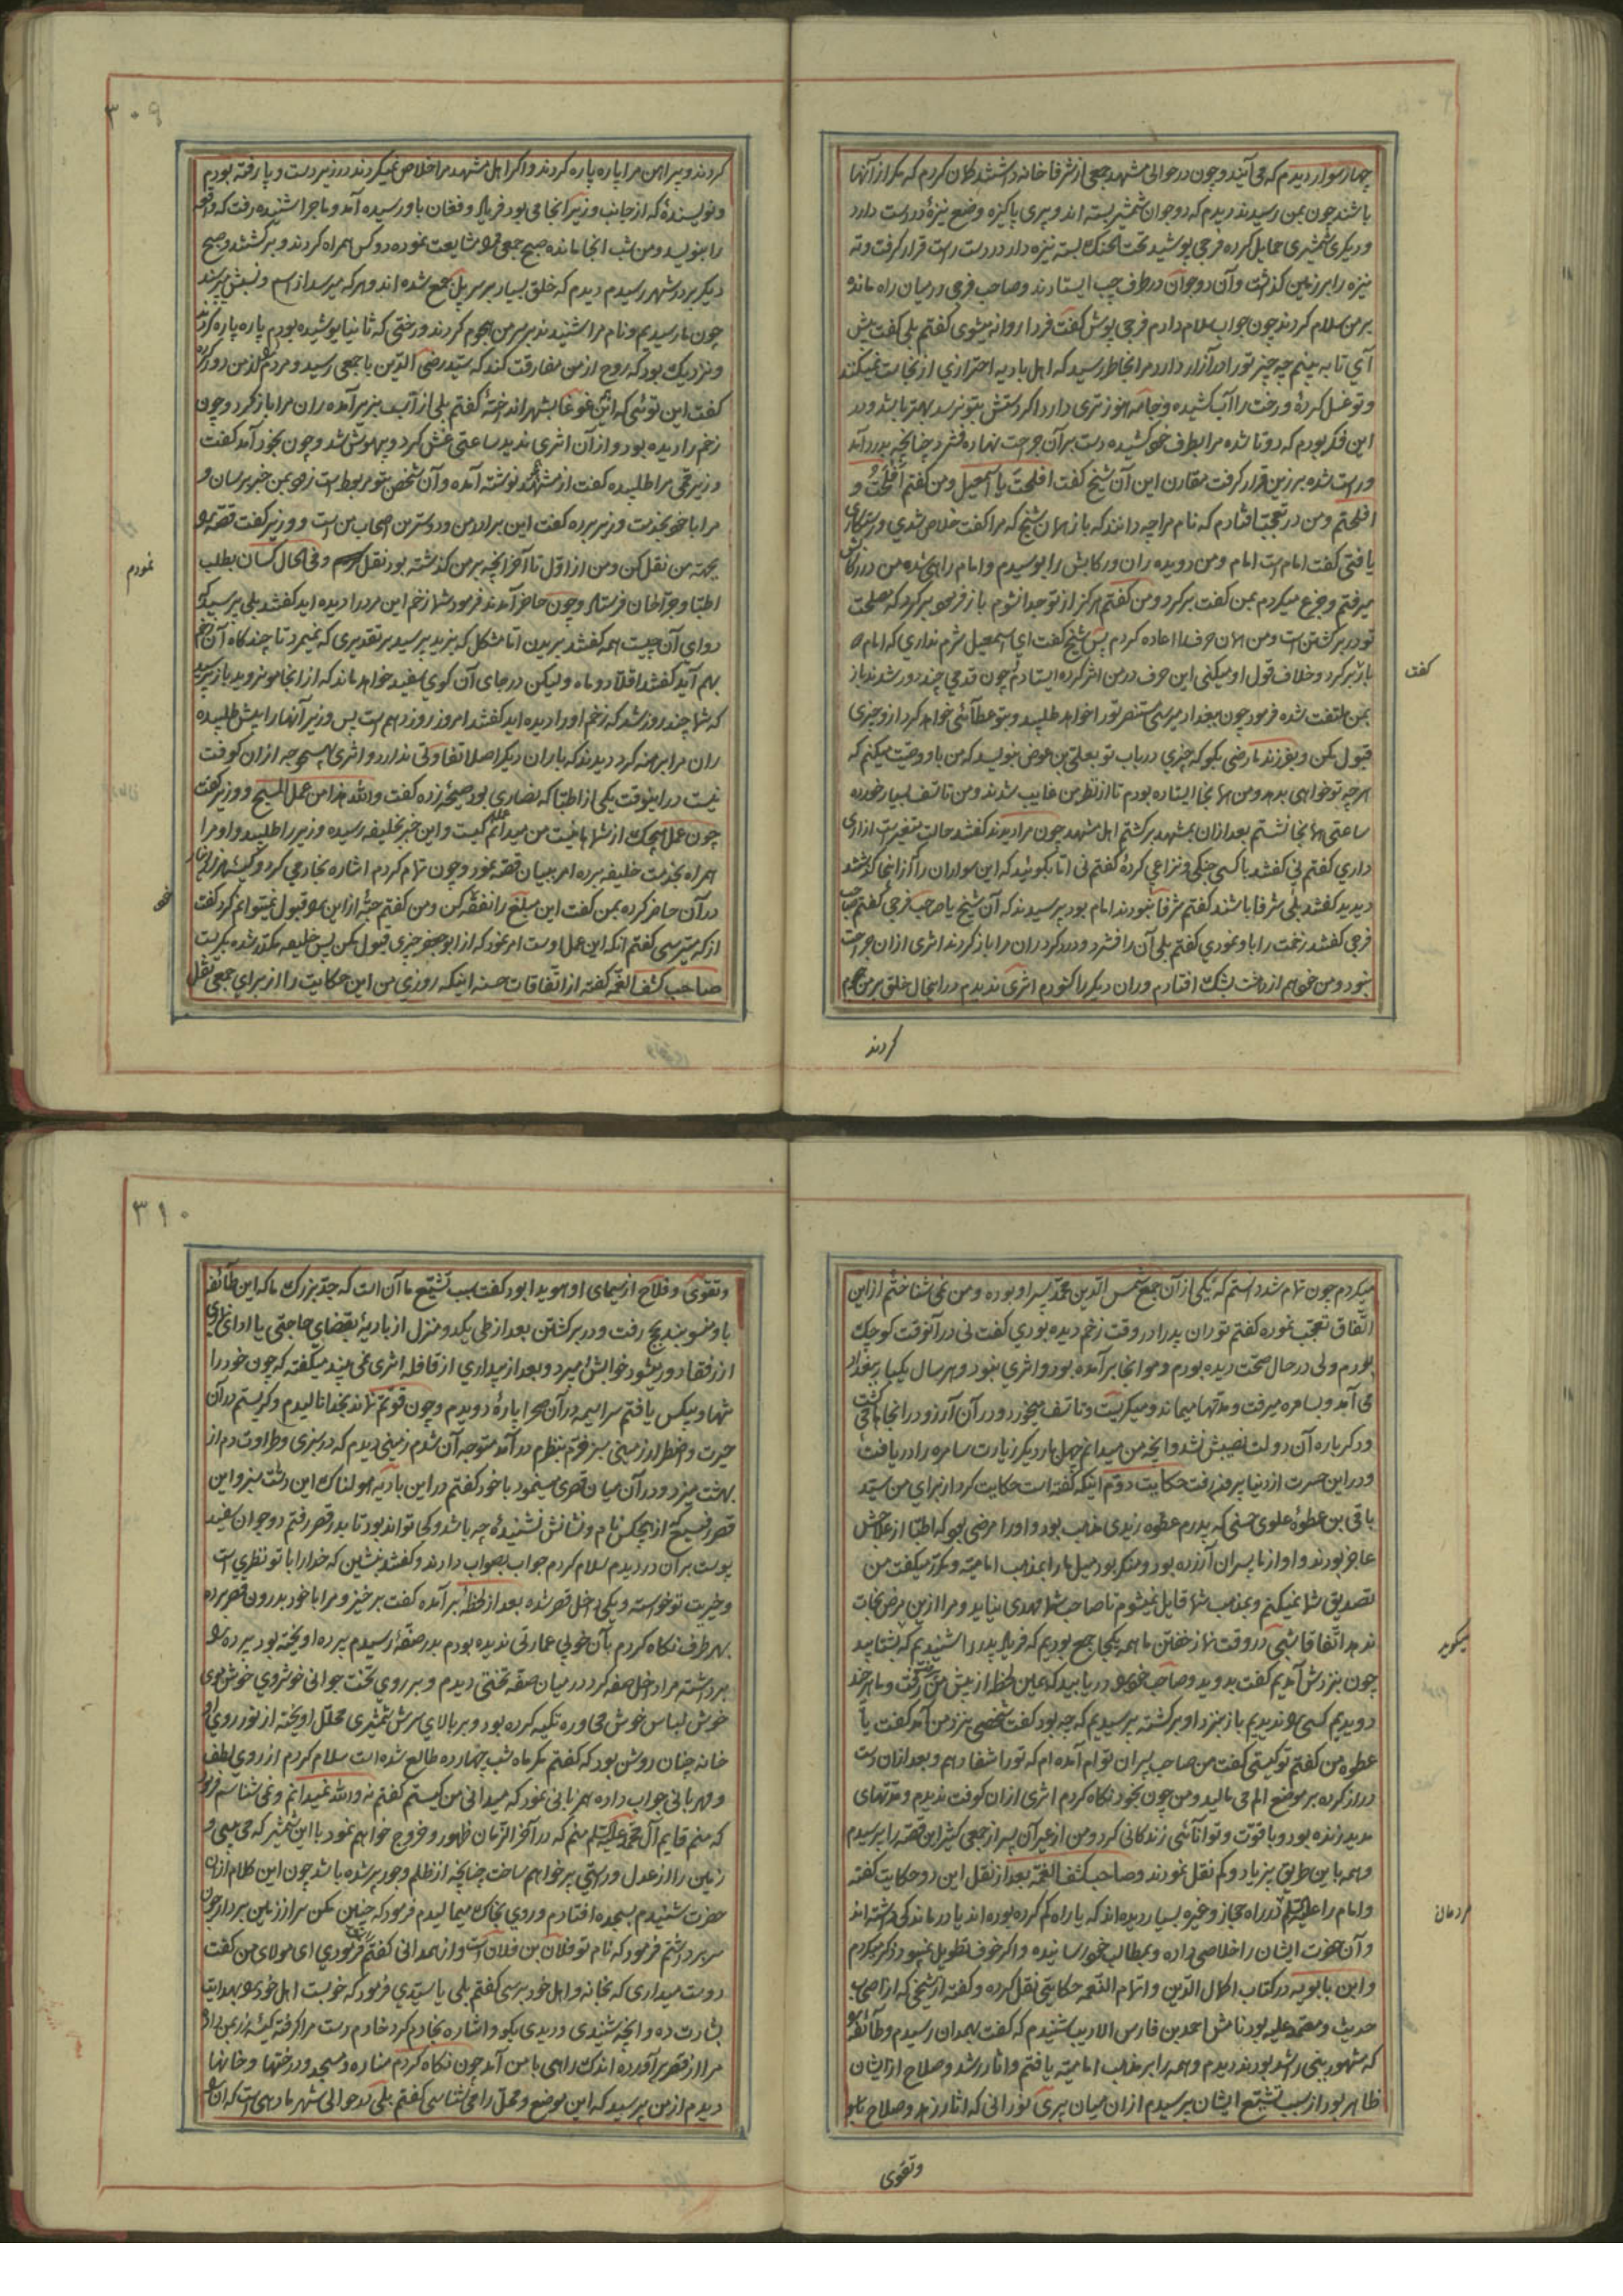 چهار سوار دیدم که می آیند و چون در حوالی مشهد جمعی از شرفا خانه داشتند کمان کردم که مکر از آنها
باشند چون بمن رسیدند دیدم که دو جوان شمشیر بسته اند و پیری پاکیزه وضع نیزهٔ در دست دارد
و دیکری شمشیری حمایل کرده فرجی پوشیده تحت الحنک بسته نیزه دار در دست راست قرار کرفت و ته
نیزه را بر زمین کذاشت و آن دو جوان در طرف چپ ایستادند و صاحب فرجی در میان راه مانده
بر من سلام کردند چون جواب سلام دادم فرجی پوش کفت فردا روانه میشوی کفتم بلی کفت پیش
آی تا به بینم چه چیز تو را در آزار دارد مرا بخاطر رسید که اهل بادیه احترازی از نجاست نمیکنند
و تو غسل کردهٔ و رخت را آب کشیده و جامه هنوز تری دارد اکر دستش بتو نرسد بهتر باشد و در
این فکر بودم که دو تا شده مرا بطرف خود کشیده دست بر آن جراحت نهاده فشرد چنانچه بدرد آمد
و راست شده بر زین قرار کرفت مقارن این آن شیخ کفت افلحت یا اسمعیل و من کفتم افلحت و
افلحتم و من در تعجب افتادم که نام مرا چه دانند که باز همان شیخ که مرا کفت خلاص شدی و رستکاری
یافتی کفت امام است امام و من دویده ران و رکابش را بوسیدم و امام راهی شده من در رکابش
میرفتم و جزع میکردم بمن کفت برکرد و من کفتم هرکز از تو جدا نشوم باز فرمود برکرد که مصلحت
تو در برکشتن است و من همان حرف را اعاده کردم پس شیخ کفت ای اسمعیل شرم نداری که امام دو
بار برکرد و خلاف قول او میکنی این حرف در من اثر کرده ایستادم چون قدمی چند دور شدند باز
بمن ملتفت شده فرمود چون ببغداد میرسی مستنصر تو را خواهد طلبید و بتو عطائی خواهد کرد از و چیزی
قبول مکن و بفرزندم رضی بکو که چیزی در باب تو بعلی بن عوض بنویسد که من باو وصیت میکنم که
هر چه تو خواهی بدهد و من همانجا ایستاده بودم تا از نظر من غایب شدند و من تاسف بسیار خورده
ساعتی همانجا نشستم بعد از آن بمشهد برکشتم اهل مشهد چون مرا دیدند کفتند حالت متغیر است ازاری
داری کفتم نی کفتند با کسی جنکی و نزاعی کردهٔ کفتم نی اما بکوئید که این سواران را که از اینجا کذشتند
دیدید کفتند بلی شرفا باشند کفتم شرفا نبودند امام بود پرسیدند که آن شیخ یا صاحب فرجی کفتم صاحب
فرجی کفتند زخمت را باو نمودی کفتم بلی آن را فشرد و درد کرد ران مرا باز کردند اثری از ان جراحت
نبود و من خودهم از دهشت بشک افتادم و ران دیکر را کشودم اثری ندیدم در اینحال خلق بر من هجوم
کفت
کردند
۳۰۹
کردند و پیراهن مرا پاره پاره کردند و اکر اهل مشهد مرا خلاص نمیکردند در زیر دست و پا رفته بودم
و نویسندهٔ که از جانب وزیر انجا می بود فریاد و فغان باو رسیده آمد و ماجرا شنیده رفت که واقعه
را بنویسد و من شب انجا مانده صبح جمعی مرا مشایعت نموده دو کس همراه کردند و برکشتند و صبح
دیکر بر در شهر رسیدم دیدم که خلق بسیار بر سر پل جمع شده اند و هر که میرسد از اسم و نسبش میپرسند
چون ما رسیدیم و نام مرا شنیدند بر سر من هجوم کردند و رختی که ثانیا پوشیده بودم پاره پاره کردند
و نزدیک بود که روح از من مفارقت کند که سید رضی الدین با جمعی رسید و مردم را از من دور کرده
کفت این توئی که این غوغا بشهر انداختهٔ کفتم بلی از اسب بزیر آمده ران مرا باز کرد و چون
زخم را دیده بود و از آن اثری ندید ساعتی غش کرد و بیهوش شد و چون بخود آمد کفت
وزیر قمی مرا طلبیده کفت از مشهد نوشته آمده و آن شخص بتو مربوط است زود بمن خبر برسان و
مرا با خود بخدمت وزیر برده کفت این برادر من و دوسترین اصحاب من است و وزیر کفت قصه را
بجهة من نقل کن و من از اول تا آخر آنچه بر من کذشته بود نقل و فی الحال کسان بطلب
اطبا و جراحان فرستاد و چون حاضر آمدند فرمود شما زخم این مرد را دیده اید کفتند بلی پرسید که
دوای آن چیست همه کفتند بریدن اما مشکل که بزید پرسید بر تقدیری که نمیرد تا چند کاه آن زخم
بهم آید کفتند اقلا دو ماه ولیکن در جای آن کوی سفید خواهد ماند که از انجا مو نروید باز پرسید
که شما چند روز شد که زخم او را دیده اید کفتند امروز روز دهم است پس وزیر آنها را پیش طلبیده
ران مرا برهنه کرد دیدند که با ران دیکر اصلا تفاوتی ندارد و اثری بهیچوجه از ان کوفت
نیست در اینوقت یکی از اطبا که نصاری بود صیحه زده کفت والله هذا من عمل المسیح و وزیر کفت
چون عمل هیچیک از شما نیست من میدانم عمل کیست و این خبر بخلیفه رسیده وزیر را طلبید و او مرا
همراه بخدمت خلیفه برده امر ببیان قصه نمود و چون تمام کردم اشاره بخادمی کرد و کیسهٔ هزار دینار
در آن حاضر کرده بمن کفت این مبلغ را نفقه کن و من کفتم حبهٔ از این را قبول نمیتوانم کرد کفت
از که میترسی کفتم آنکه این عمل اوست امر نمود که از ابو جعفر چیزی قبول مکن پس خلیفه مکدر شده بکریست
صاحب کشف الغمه کفته از اتفاقات حسنه اینکه روزی من این حکایت را از برای جمعی نقل
نمودم
میکردم چون تمام شد دانستم که یکی از آن جمع شمس الدین محمد پسر او بوده و من نمی شناختم از این
اتفاق تعجب نموده کفتم تو ران پدر را در وقت زخم دیده بودی کفت نی در آنوقت کوچک
بودم ولی در حال صحت دیده بودم و مو انجا بر آمده بود و اثری نبود و هر سال یکبار ببغداد
می آمد و بسامره میرفت و مدتها میماند و میکریست و تاسف میخورد و در آن آرزو در انجاها میکشت
و دیکر باره آن دولت نصیبش نشد و آنچه من میدانم چهل بار دیکر زیارت سامره را دریافت
و در این حسرت از دنیا بیرون رفت حکایت دوم اینکه کفته است حکایت کرد از برای من سید
باقی بن عطوهٔ علوی حسنی که پدرم عطوه زیدی مذهب بود و او را مرضی بود که اطبا از علاجش
عاجز بودند و او از ما پسران آزرده بود و منکر بود میل ما را بمذهب امامیه و مکرر میکفت من
تصدیق شما نمیکنم و بمذهب شما قایل نمیشوم تا صاحب شما مهدی بیاید و مرا از این مرض نجات
ندهد اتفاقا شبی در وقت نماز خفتن ما همه یکجا جمع بودیم که فریاد پدر را شنیدیم که بشتابید
چون بنزدش آمدیم کفت بدوید و صاحب خود را دریابید که همین لحظه از پیش من رفت و ما هر چند
دویدیم کسی را ندیدیم باز بنزد او برکشته پرسیدیم که چه بود کفت شخصی بنزد من آمد کفت یا
عطوه من کفتم تو کیستی کفت من صاحب پسران توام آمده ام که تو را شفا دهم و بعد از ان دست
دراز کرده بر موضع الم می مالید و من چون بخود نکاه کردم اثری از ان کوفت ندیدم و مدتهای
مدید زنده بود و با قوت و توانائی زندکانی کرد و من از غیر آن پسر از جمعی کثیر این قصه را پرسیدم
و همه باین طریق بی زیاد و کم نقل نمودند و صاحب کشف الغمه بعد از نقل این دو حکایت کفته
و امام را علیه السلام در راه حجاز و غیره بسیار دیده اند که یا راه کم کرده بوده اند یا درماندکی داشته اند
و آن حضرت ایشان را خلاصی داده و بمطالب خود رسانیده و اکر خوف تطویل نمیبود ذکر میکردم
و ابن بابویه در کتاب اکمال الدین و اتمام النعمه حکایتی نقل کرده و کفته از شیخی که از اصحاب
حدیث و معتمد علیه بود نامش احمد بن فارس الادیب شنیدم که کفت بهمدان رسیدم و طائفه را
که مشهور ببنی راشد بودند دیدم و همه را بر مذهب امامیه یافتم و اثار رشد و صلاح از ایشان
ظاهر بود از سبب تشیع ایشان پرسیدم از ان میان پیری نورانی که اثار زهد و صلاح
میکوید
مردمان
و تقوی
۳۱۰
و تقوی و فلاح از سیمای او هویدا بود کفت سبب تشیع ما آن است که جد بزرک ما که این طائفه
باو منسوبند بحج رفت و در برکشتن بعد از طی یکدو منزل از بادیه بقضای حاجتی یا ادای نمازی
از رفقا دور میشود خوابش میبرد و بعد از بیداری از قافله اثری نمی بیند میکفته که چون خود را
تنها و بیکس یافتم سراسیمه در آن صحرا پارهٔ دویدم و چون قوتم نماند بخدا نالیدم و کریستم در آن
حیرت و اضطرار زمینی سبز و خرم بنظرم در آمد متوجه آن شدم زمینی دیدم که در سبزی و طراوت دم از
بهشت میزد و در آن میان قصری مینمود با خود کفتم در این بادیه هولناک این دشت سبز و این
قصر رفیع که از هیچکس نام و نشانش نشنیدهٔ چه باشد و کجا تواند بود تا بدر قصر رفتم دو جوان سفید
پوست بر آن در دیدم سلام کردم جواب بصواب دادند و کفتند بنشین که خدا را با تو نظری است
و خیریت تو خواسته و یکی داخل قصر شده بعد از لحظهٔ بر آمده کفت برخیز و مرا با خود بدرون قصر برده
بهر طرف نکاه کردم بآن خوبی عمارتی ندیده بودم بدر صفهٔ رسیدم پرده اویخته بود پرده را
برداشته مرا داخل صفه کرد در میان صفه تختی دیدم و بر روی تخت جوانی خوشروی خوش موی
خوش لباس خوش محاوره تکیه کرده بود و بر بالای سرش شمشیری محلل اویخته از نور روی او
خانه چنان روشن بود که کفتم مکر ماه شب چهارده طالع شده است سلام کردم از روی لطف
و مهربانی جواب داده مهربانی نمود که میدانی من کیستم کفتم نه والله نمیدانم و نمی شناسم فرمود
که منم قایم آل محمد علیه السلام منم که در آخر الزمان ظهور و خروج خواهم نمود با این شمشیر که می بینی و
زمین را از عدل و راستی پر خواهم ساخت چنانچه از ظلم و جور پر شده باشد چون این کلام از ان
حضرت شنیدم بسجده افتادم و روی بخاک میمالیدم فرمود که چنین مکن سر از زمین بردار چون
سر برداشتم فرمود که نام تو فلان بن فلان است و از همدانی کفتم راست فرمودی ای مولای من کفت
دوست میداری که بخانه و اهل خود برسی کفتم بلی یا سیدی فرمود که خوبست اهل خود را بهدایت
بشارت ده و آنچه شنیدی و دیدی بکو و اشاره بخادم کرد خادم دست مرا کرفته کیسهٔ زر بمن داده
مرا از قصر بر آورده اندک راهی با من آمد چون نکاه کردم مناره و مسجد و درختها و خانها
دیدم از من پرسید که این موضع و محل را می شناسی کفتم بلی در حوالی شهر ما دهی است که آن را